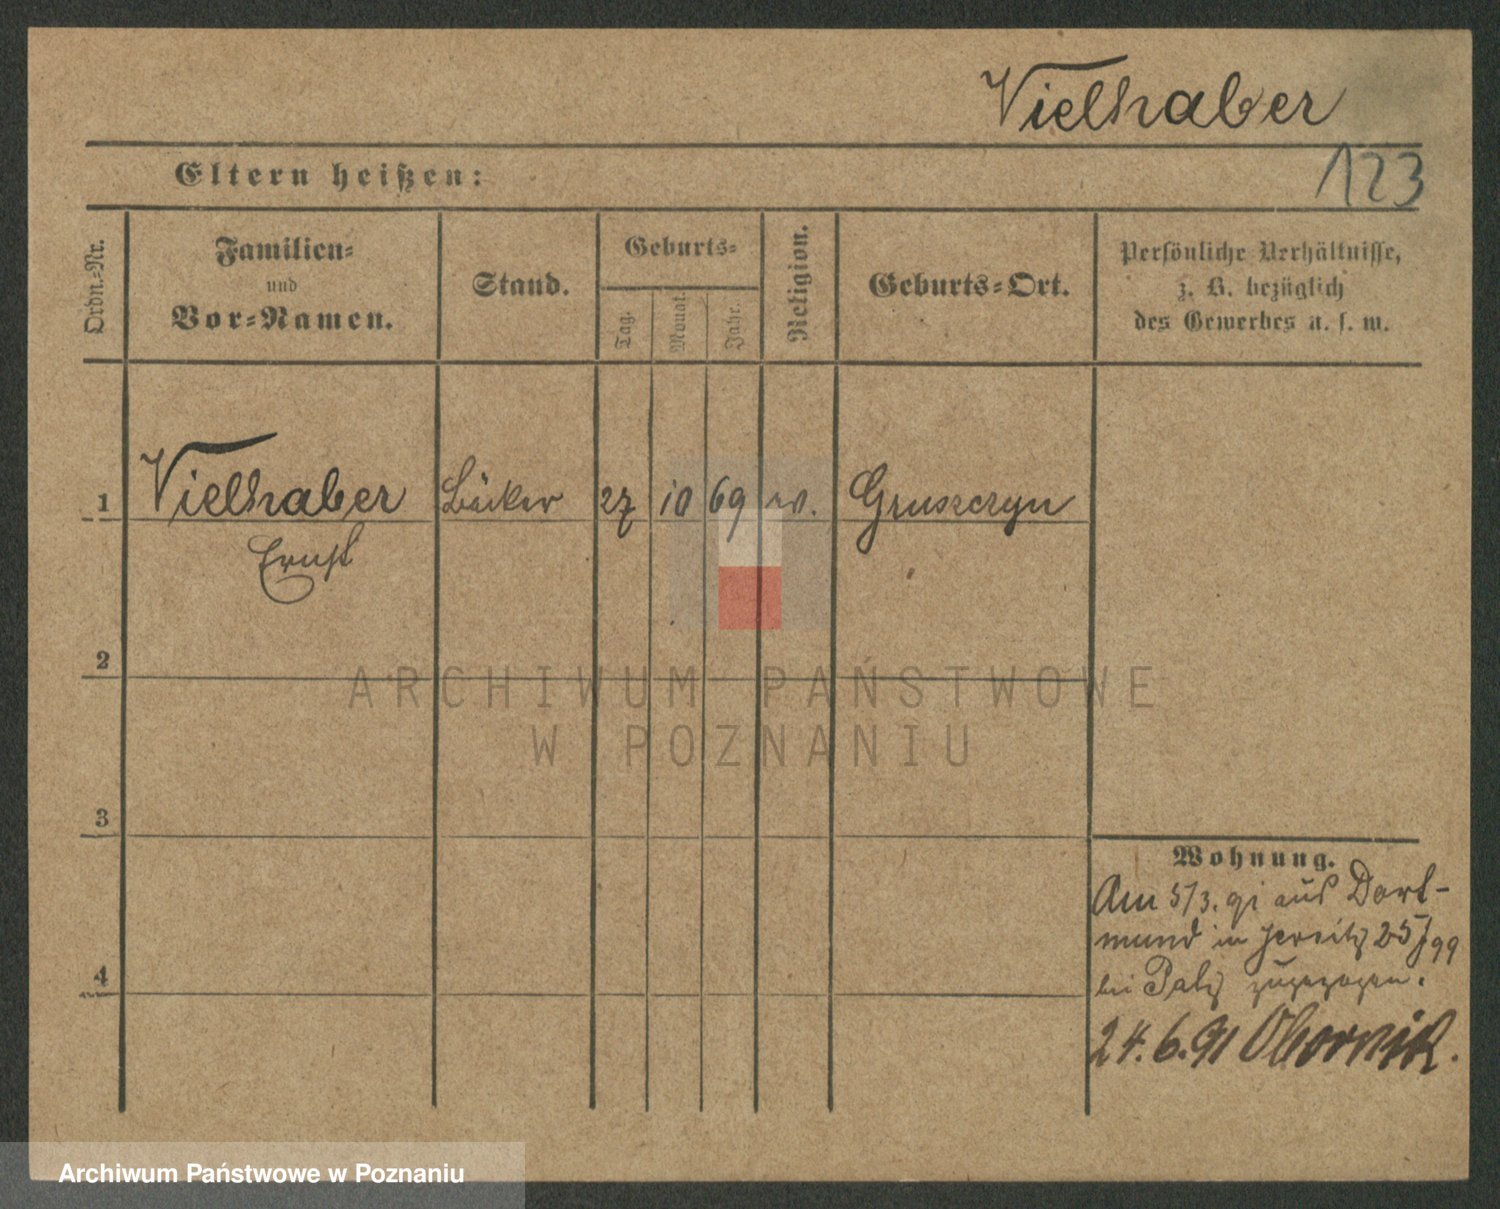 Vielhaber
123
Eltern heißen:
Ordn.-Nr.
Familien-
und
Vor-Namen.
Stand.
Geburts-
Tag.
Monat.
Jahr.
Religion.
Geburts-Ort.
Persönliche Verhältnisse,
z. B. bezüglich
des Gewerbes u. s. w.
1 Vielhaber Bäcker 27 10 69 Gruszczyn
Ernst
2
3
4
Wohnung.
Am 5/3. 91 aus Dort-
mund in Jersitz 25/99
bei zugezogen.
24.6.91 Obornik.
ARCHIWUM PAŃSTWOWE
W POZNANIU
Archiwum Państwowe w Poznaniu